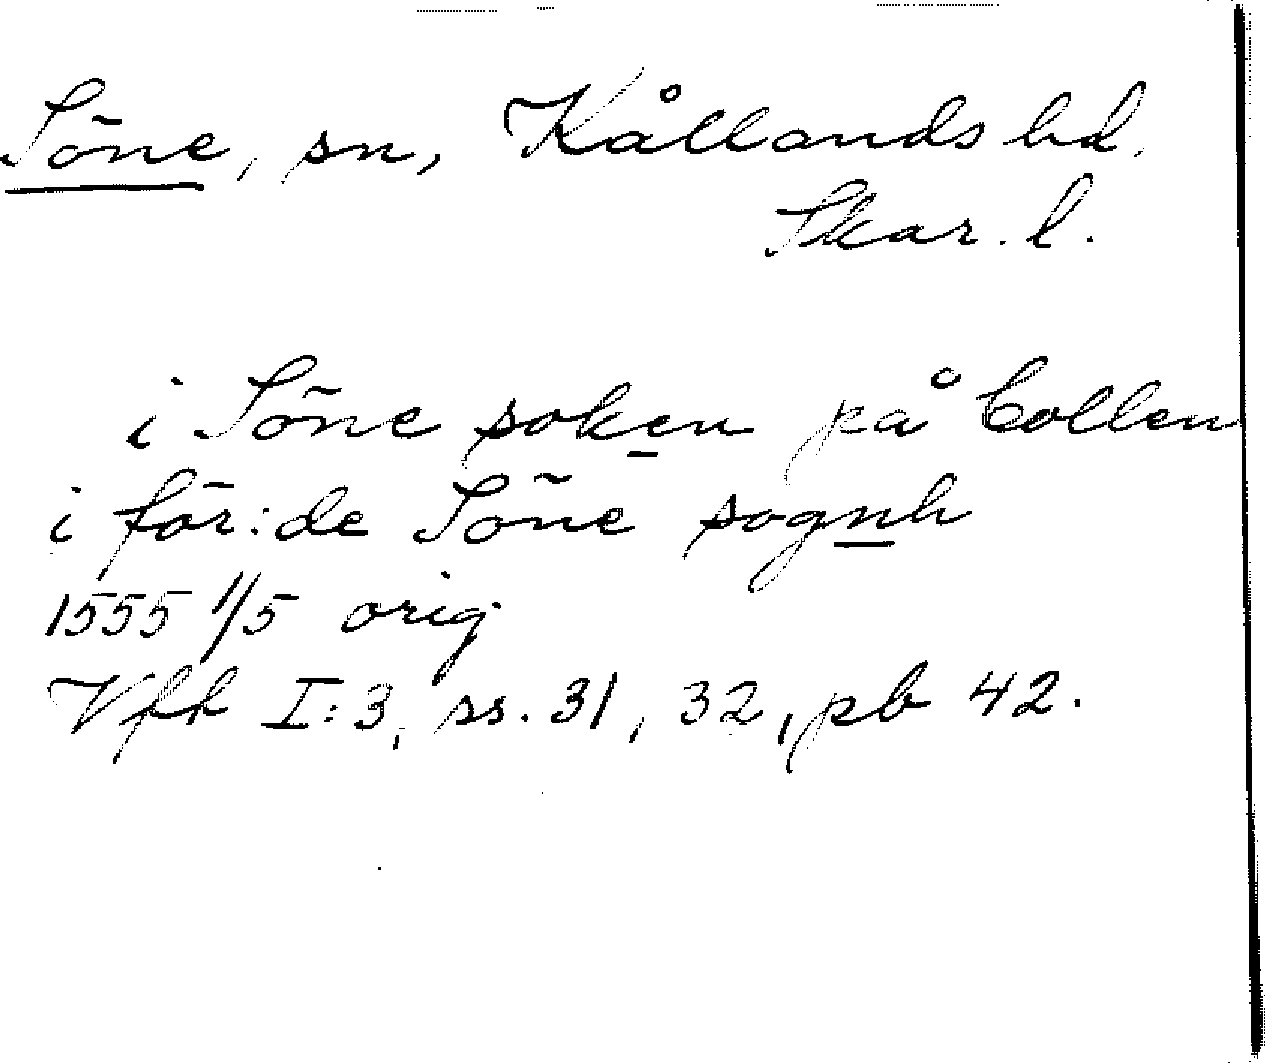 Söne, sn, Kållands hd.
Skar. l.
i Söne soken på Collen
i för:de Söne sognh
1555 1/5 orig
Vfk I:3, ss. 31, 32, pb 42.